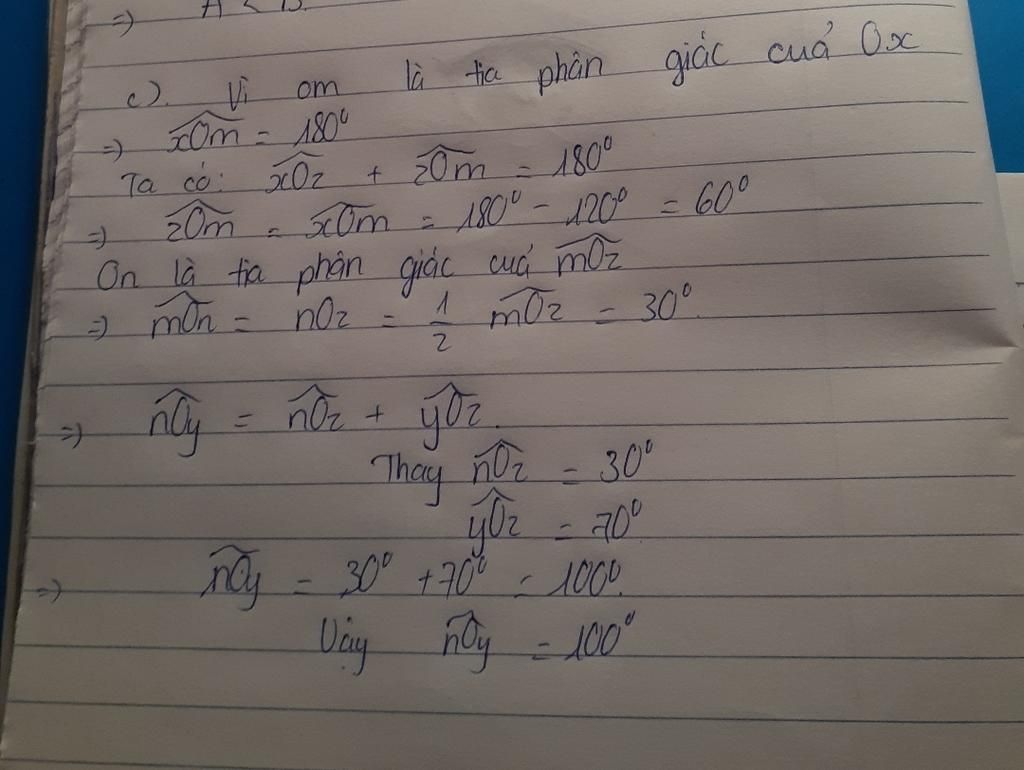 => A < B.
c). Vì om là tia phân giác cuả Ox
=> xOm = 180⁰
Ta có: xOz + zOm = 180⁰
=> zOm = xOm = 180⁰ - 120⁰ = 60⁰
On là tia phân giác cuả mOz
=> mOn = nOz = 1/2 mOz = 30⁰.
=> nOy = nOz + yOz.
Thay nOz = 30⁰
yOz = 70⁰
=> nOy = 30⁰ + 70⁰ = 100⁰.
Vậy nOy = 100⁰